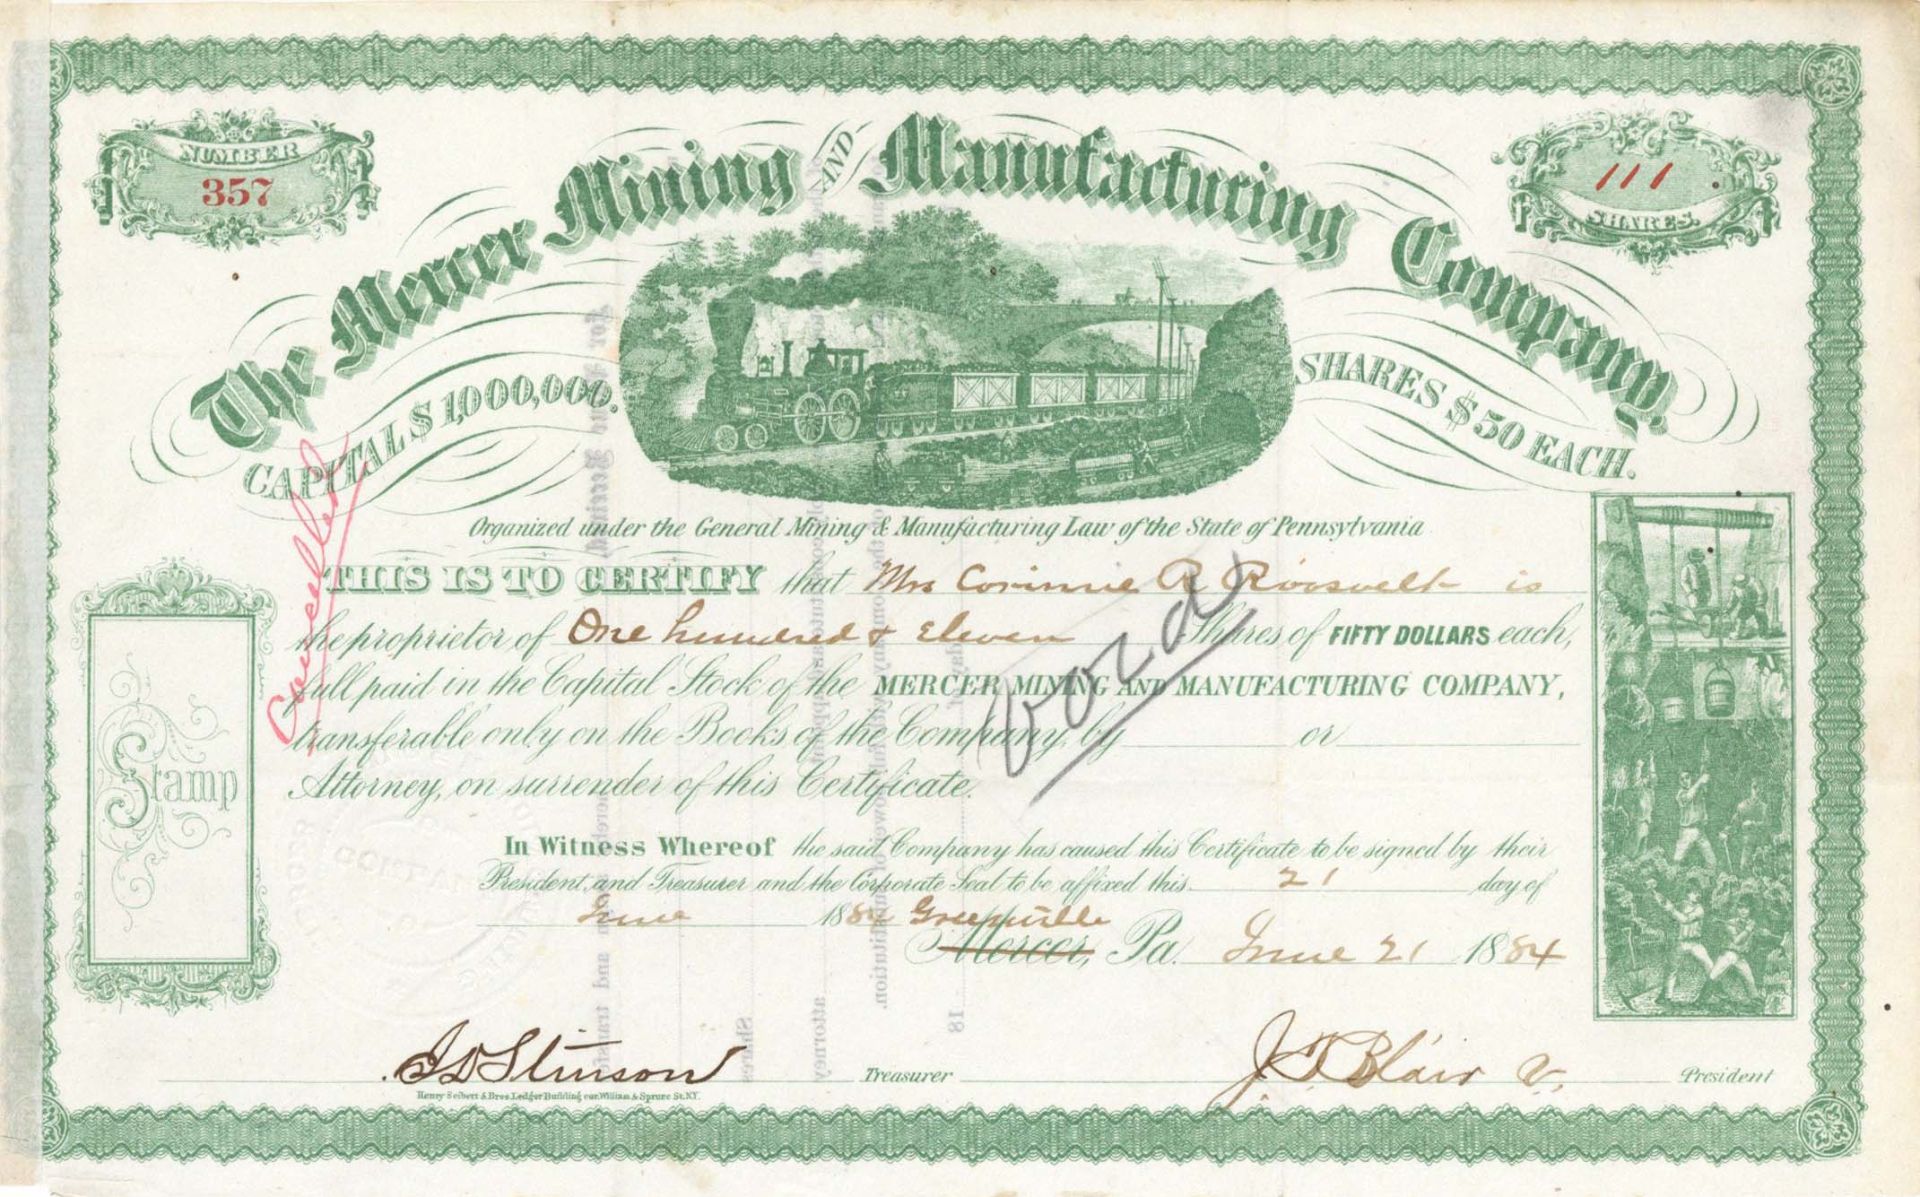 NUMBER
357
111
SHARES.
The Mercer Mining AND Manufacturing Company
CAPITAL $1,000,000.
SHARES $50 EACH.
Organized under the General Mining & Manufacturing Law of the State of Pennsylvania
Cancelled
THIS IS TO CERTIFY that Mrs Corinnie R Roosvelt is
the proprietor of One hundred & Eleven Shares of FIFTY DOLLARS each,
full paid in the Capital Stock of the MERCER MINING AND MANUFACTURING COMPANY,
transferable only on the Books of the Company, by or
Attorney, on surrender of this Certificate.
Void
Stamp
In Witness Whereof the said Company has caused this Certificate to be signed by their
President, and Treasurer and the Corporate Seal to be affixed this 21 day of
June 1884 Greenville
Mercer, Pa. June 21 1884
J D Stinson Treasurer J. T. Blair V. President
Henry Seibert & Bros. Ledger Building cor. William & Spruce St. N.Y.